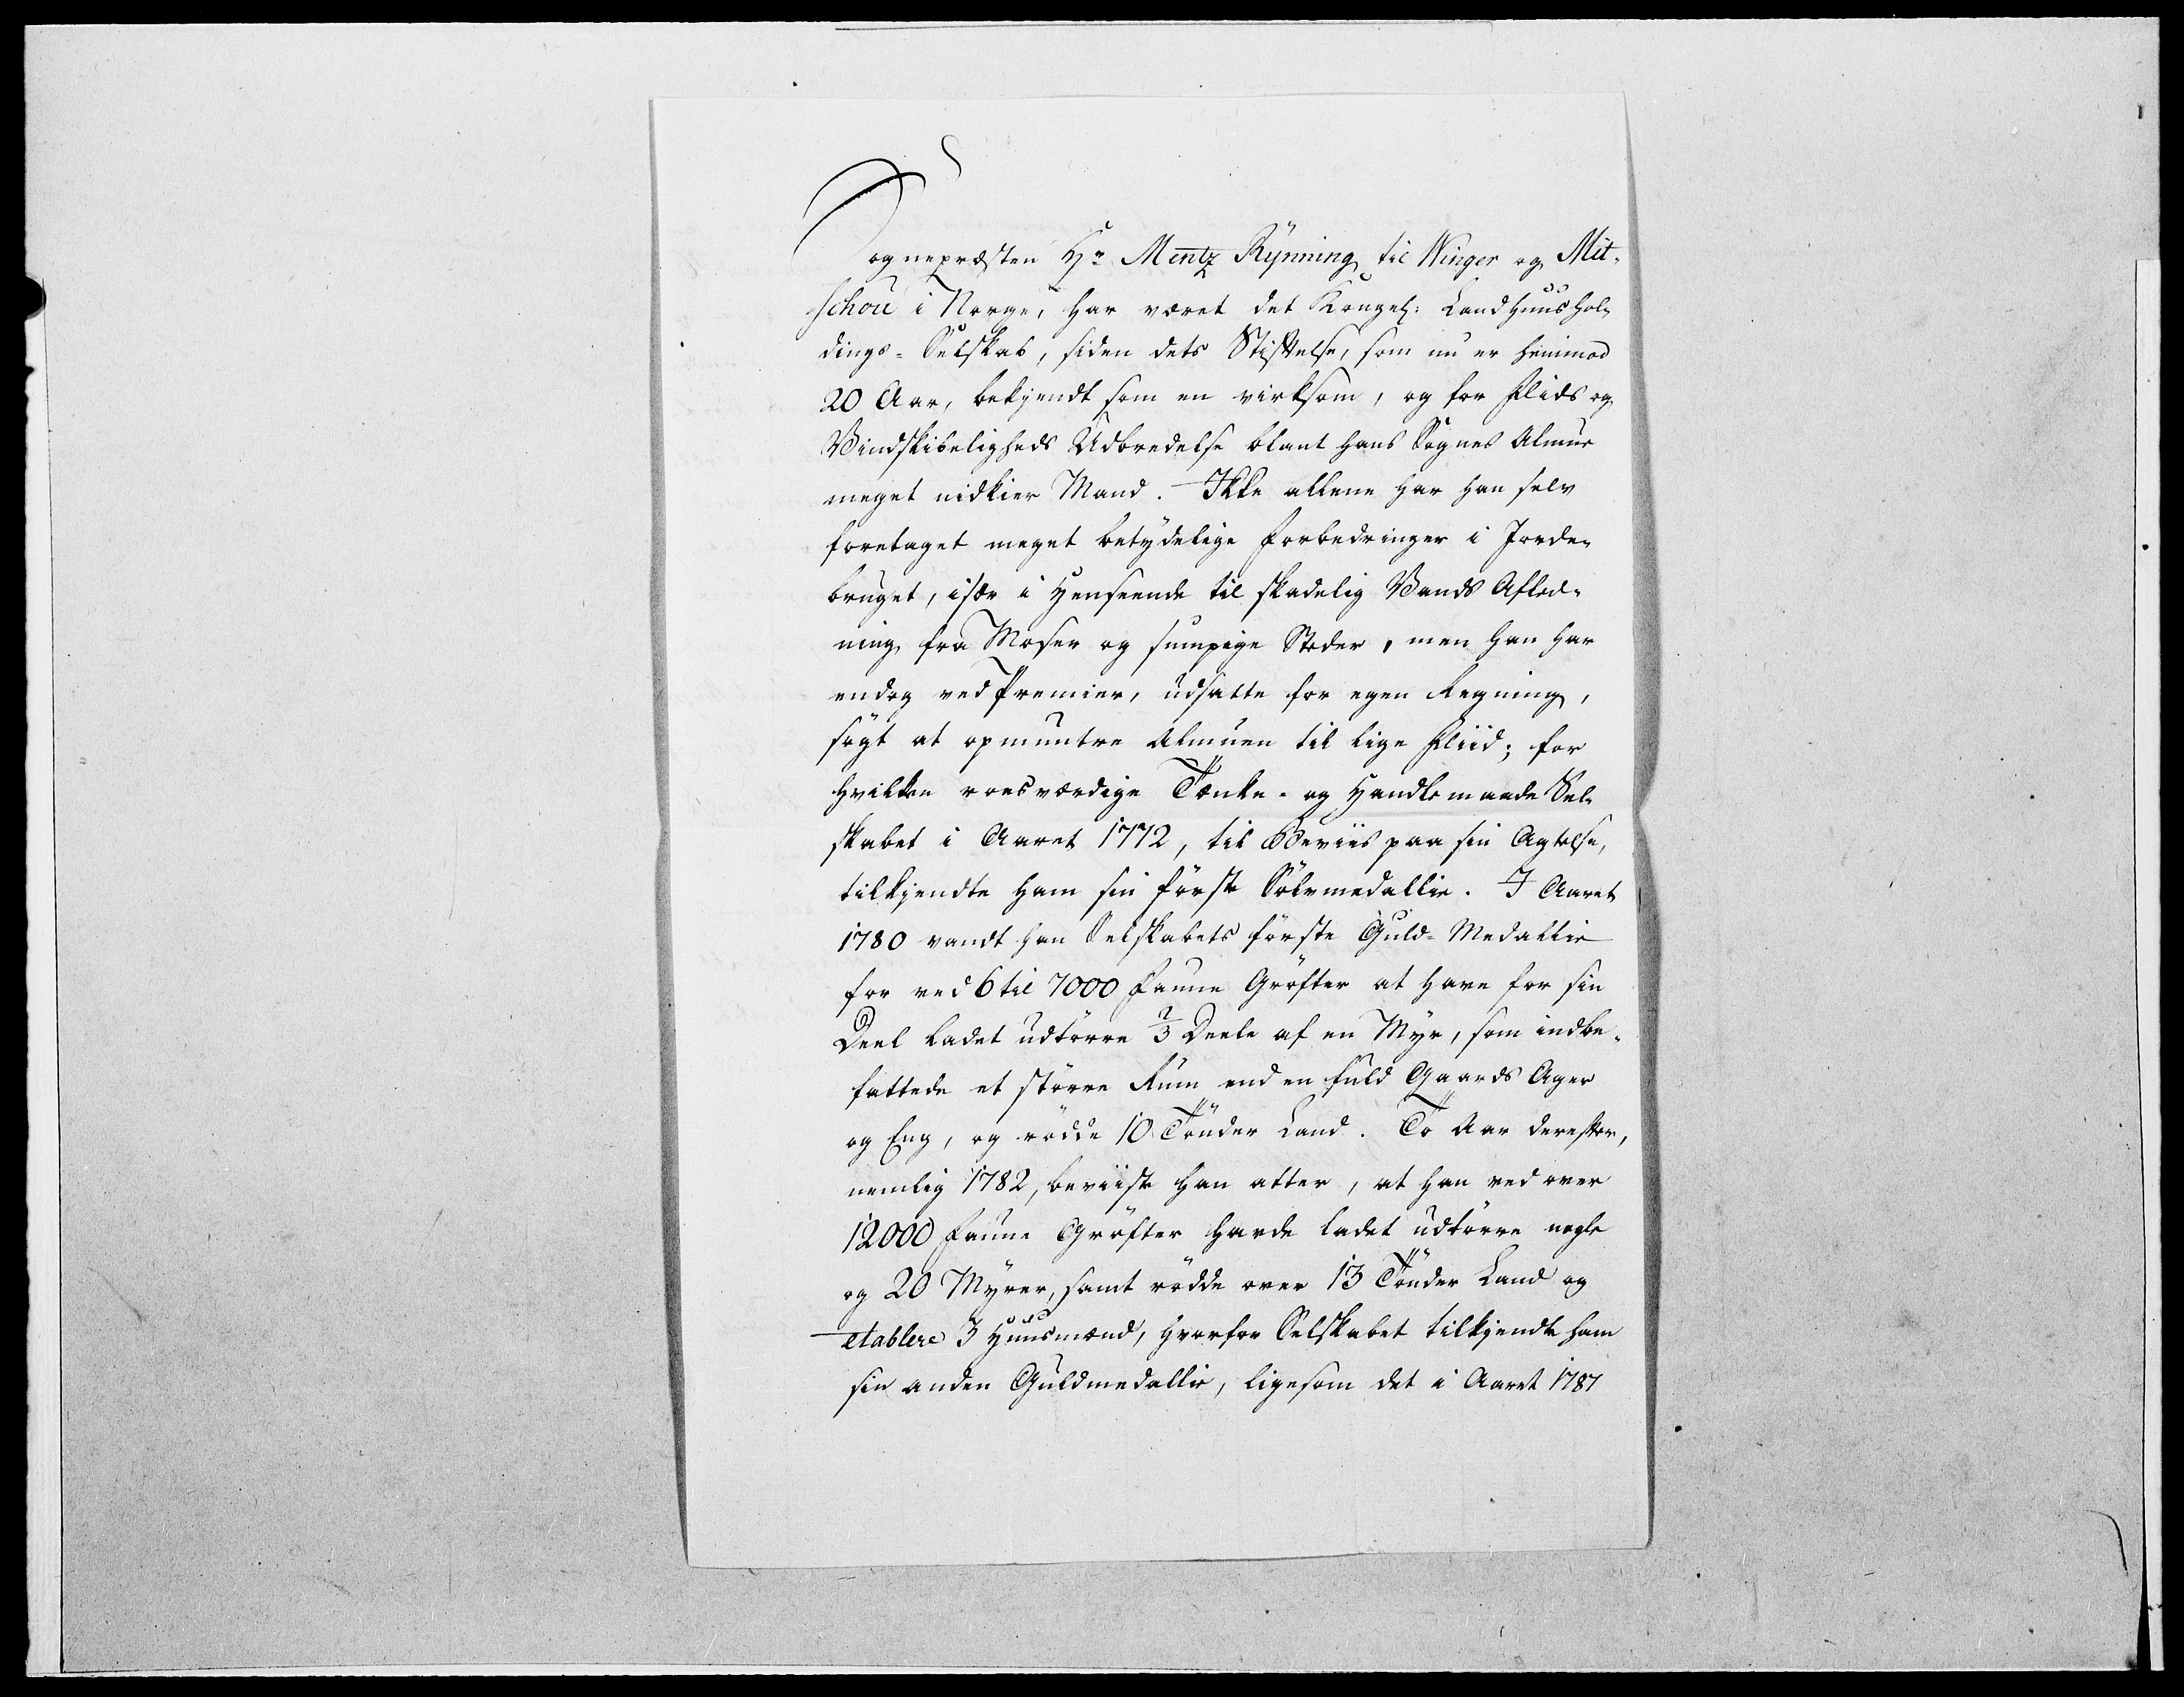 Sognepræsten Hr. Mentz Rynning til Winger og Mit-
schou i Norge, har været det Kongel: Landhuushol-
dings-Selskab, siden dets Stiftelse, som nu er henimod
20 Aar, bekjendt som en virksom, og for Flids og
Vindskibeligheds Udbredelse blant hans Sognes Almue
meget nidkier Mand. Ikke allene har han selv
foretaget meget betydelige Forbedringer i Jorde-
bruget, især i Henseende til skadelig Vands Afled-
ning fra Moser og sumpige Steder, men han har
endog ved Premier, udsatte for egen Regning,
søgt at opmuntre Almuen til lige Fliid; for
hvilken roesværdige Tænke- og Handlemaade Sel-
skabet i Aaret 1772, til Beviis paa sin Agtelse,
tilkjendte ham sin første Sølvmedallie. I Aaret
1780 vandt han Selskabets første Guld-Medallie
for ved 6 til 7000 Favne Grøfter at have for sin
Deel ladet udtørre 2/3 Deele af en Myr, som indbe-
fattede et større Rum end en fuld Gaards Ager
og Eng, og rødde 10 Tønder Land. To Aar derefter,
nemlig 1782, beviiste han atter, at han ved over
12000 Favne Grøfter havde ladet udtørre nogle
og 20 Myrer, samt rødde over 13 Tønder Land og
etablere 3 Huusmænd, hvorfor Selskabet tilkjendte ham
sin anden Guldmedallie, ligesom det i Aaret 1787